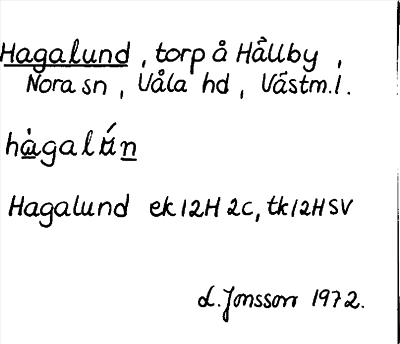 Hagalund, torp å Hållby,
Nora sn, Våla hd, Västm.l.
hàgalún
Hagalund ek12H 2c, tk12HSV
L. Jonsson 1972.